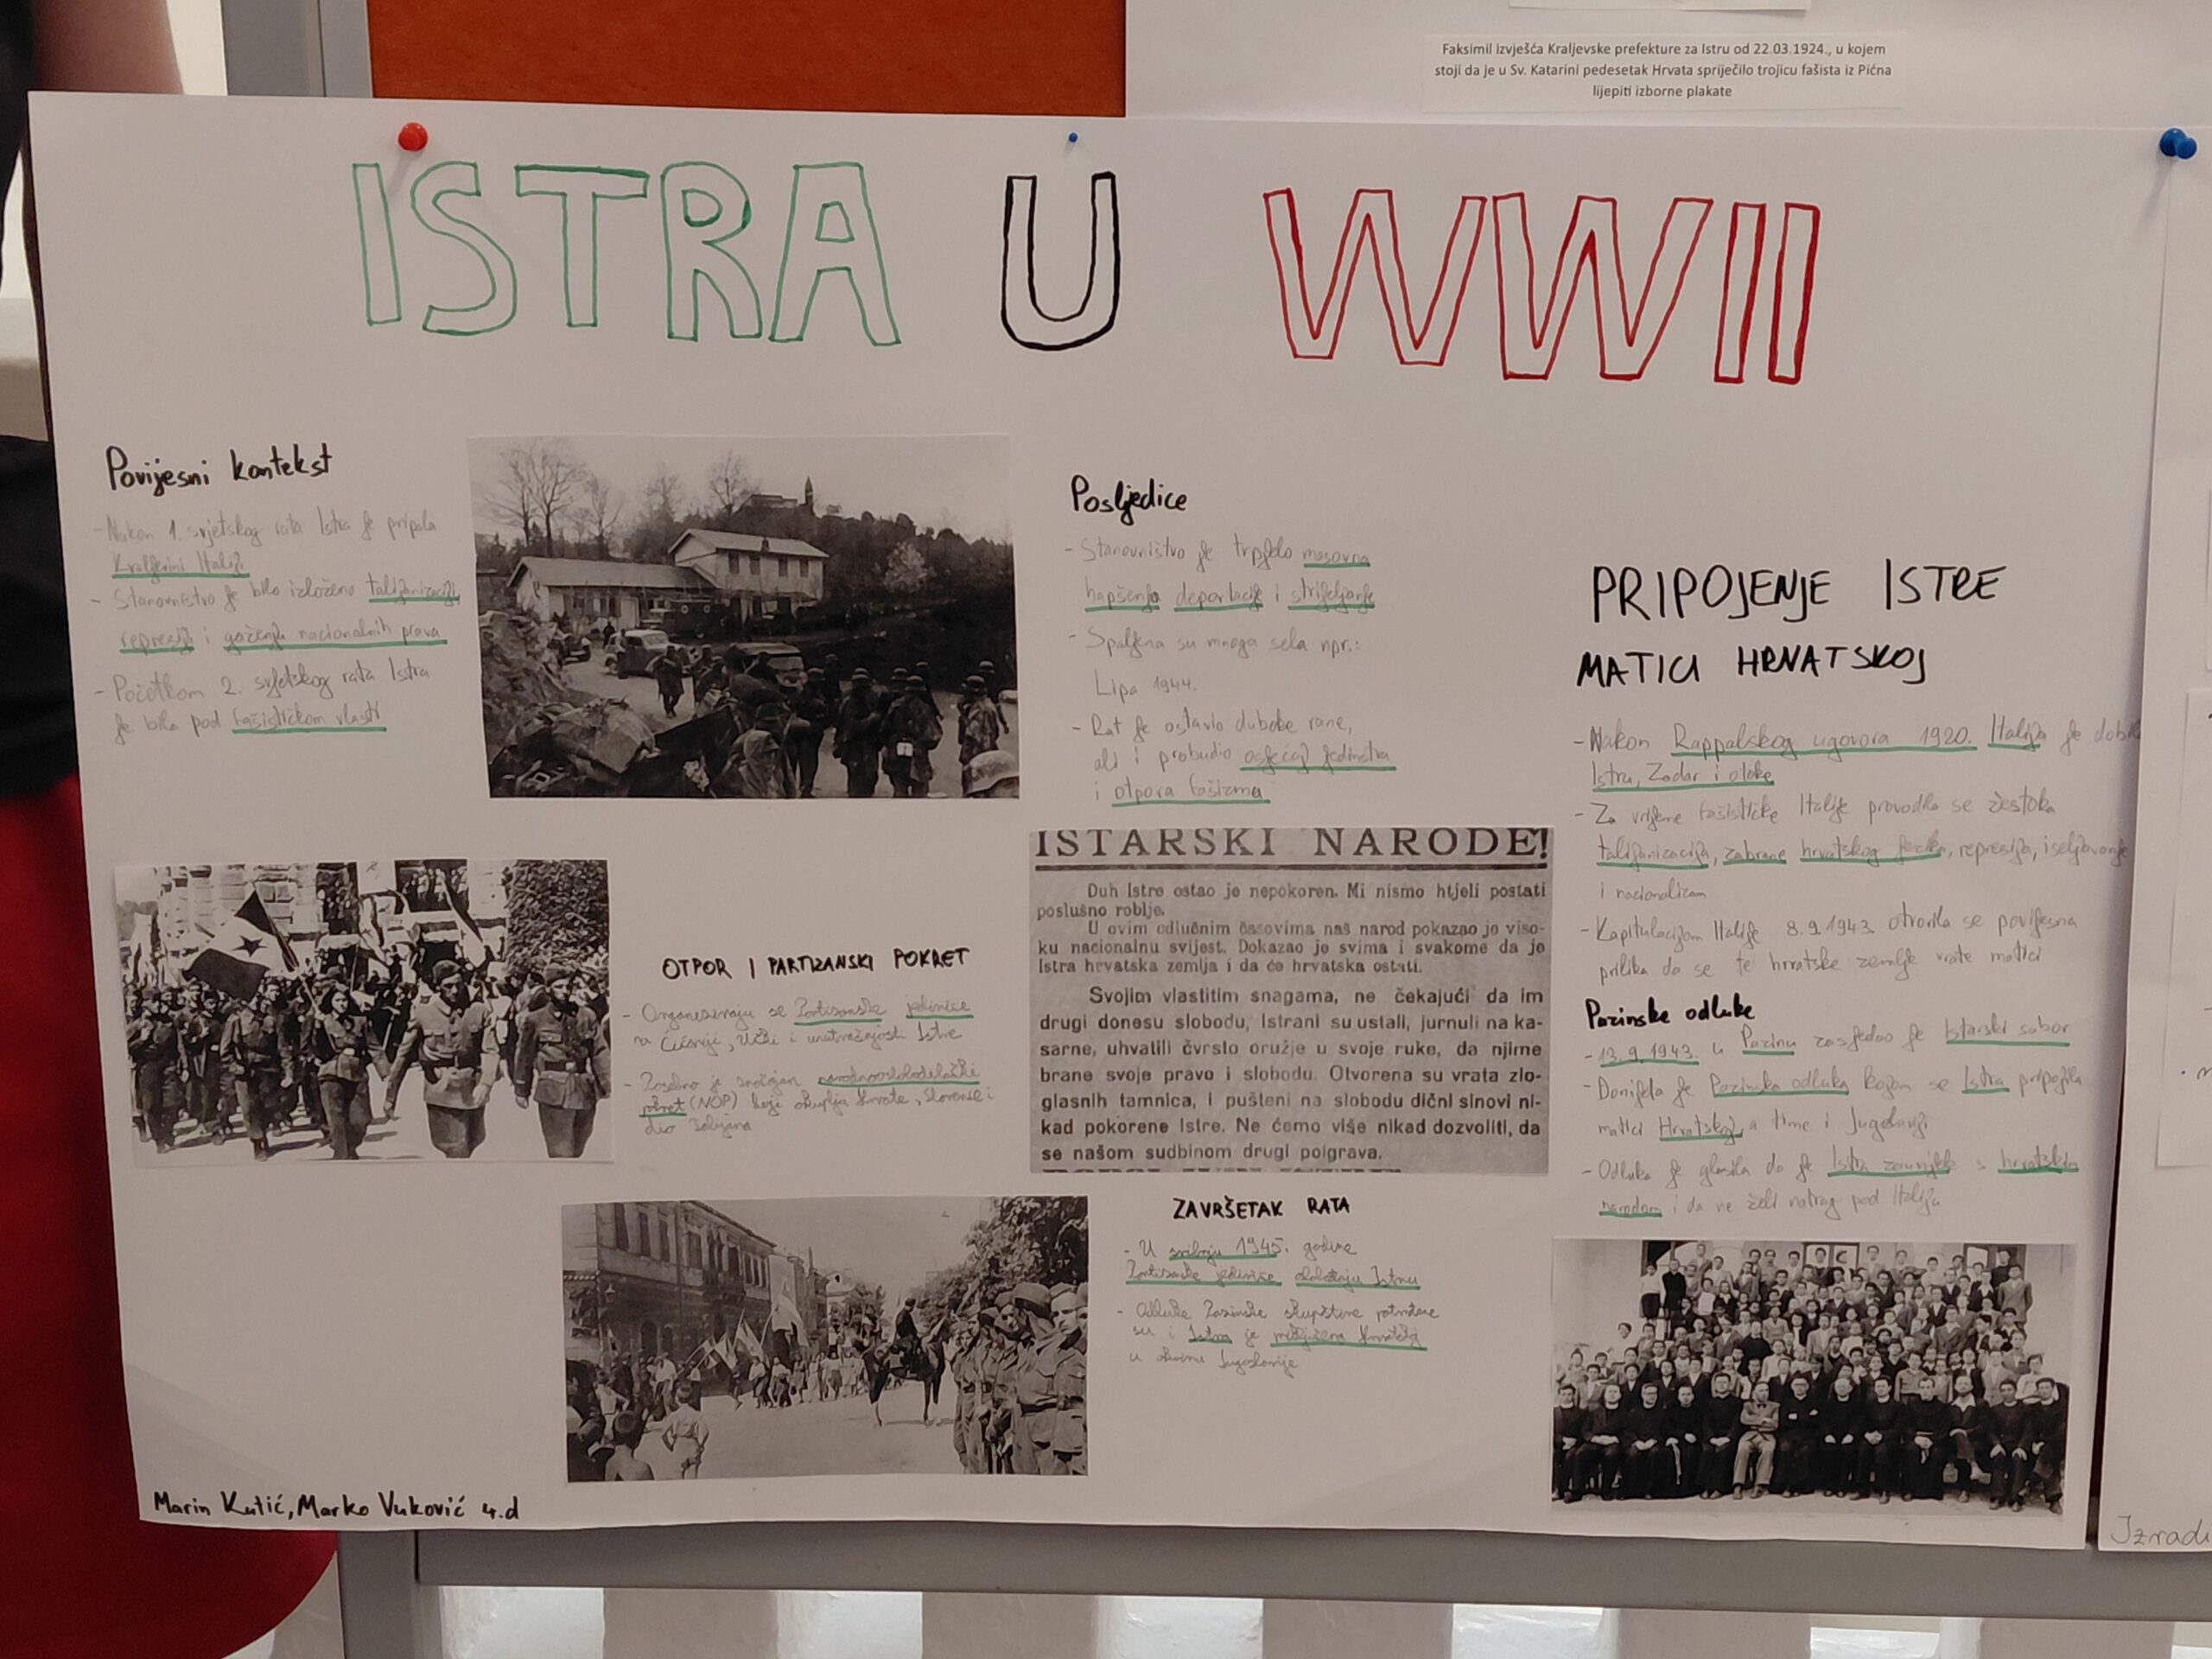 Faksimil izvješća Kraljevske prefekture za Istru od 22.03.1924., u kojem
stoji da je u Sv. Katarini pedesetak Hrvata spriječilo trojicu fašista iz Pićna
lijepiti izborne plakate
ISTRA U WWII
Povijesni kontekst
- Nakon 1. svjetskog rata Istra je pripala
Kraljevini Italiji
- Stanovništvo je bilo izloženo talijanizaciji
represiji i gaženju nacionalnih prava
- Početkom 2. svjetskog rata Istra
je bila pod fašističkom vlasti
OTPOR I PARTIZANSKI POKRET
- Organiziraju se Partizanske jedinice
na Ćićariji, Učki i unutrašnjosti Istre
- Posebno je značajan narodnooslobodilački
pokret (NOP) koji okuplja Hrvate, Slovence i
dio Talijana
Posljedice
- Stanovništvo je trpjelo masovna
hapšenja deportacije i strijeljanje
- Spaljena su mnoga sela npr.:
Lipa 1944.
- Rat je ostavio duboke rane,
ali i probudio osjećaj jedinstva
i otpora fašizma
ISTARSKI NARODE!
Duh Istre ostao je nepokoren. Mi nismo htjeli postati
poslušno roblje.
U ovim odlučnim časovima naš narod pokazao je viso-
ku nacionalnu svijest. Dokazao je svima i svakome da je
Istra hrvatska zemlja i da će hrvatska ostati.
Svojim vlastitim snagama, ne čekajući da im
drugi donesu slobodu, Istrani su ustali, jurnuli na ka-
sarne, uhvatili čvrsto oružje u svoje ruke, da njime
brane svoje pravo i slobodu. Otvorena su vrata zlo-
glasnih tamnica, i pušteni na slobodu dični sinovi ni-
kad pokorene Istre. Ne ćemo više nikad dozvoliti, da
se našom sudbinom drugi poigrava.
ZAVRŠETAK RATA
- U svibnju 1945. godine
Partizanske jedinice oslobađaju Istru
- Odluke Pazinske skupštine potvrđene
su i Istra je priključena Hrvatskoj
u okviru Jugoslavije
PRIPOJENJE ISTRE
MATICI HRVATSKOJ
- Nakon Rappalskog ugovora 1920. Italija je dobila
Istru, Zadar i otoke
- Za vrijeme fašističke Italije provodila se žestoka
talijanizacija, zabrane hrvatskog jezika, represija, iseljavanje
i nacionalizam
- Kapitulacijom Italije 8.9.1943. otvorila se povijesna
prilika da se te hrvatske zemlje vrate matici
Pazinske odluke
- 13.9.1943. u Pazinu zasjedao je Istarski sabor
- Donijela je Pazinska odluka kojom se Istra pripojila
matici Hrvatskoj, a time i Jugoslaviji
- Odluka je glasila da je Istra zauvijek s hrvatskim
narodom i da ne želi natrag pod Italiju
Marin Kutić, Marko Vuković 4.d
Izradi